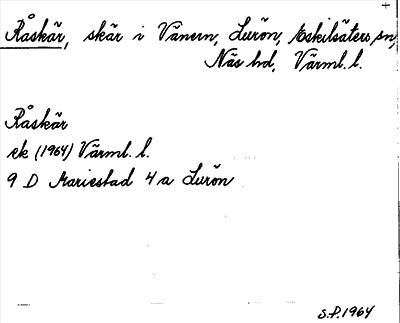 Råskär, skär i Vänern, Lurön, Eskilsäters sn,
Näs hd, Värml. l.
Råskär
ek (1964) Värml. l.
9 D Mariestad 4 a Lurön
S.P. 1964